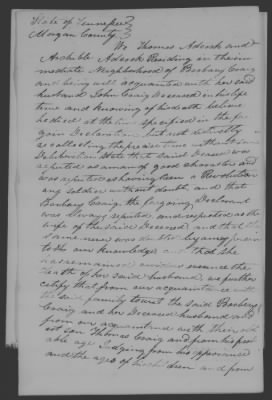 State of Tennessee
Morgan County
We Thomas Adcock and
Archible Adcock Residing in the im
mediate Neighborhood of Barbary Craig
and being well acquainted with her said
husband John Craig Deceased in his life
time and knowing of his death believe
he died at the time specified in the fo
gain Declaration but not distinctly
recollecting the precise time without some
Deliberation State that Said Deceased was
reputed as a man of good character and
was reputed as having been a Revolution
ary soldier without doubt, and that
Barbary Craig the forgoing Declarant
was always reputed and respected as the
wife of the said Deceased and that the
same never was doubted by any person
to the our knowledge and that She
has remained since the
death of her said husband we further
certify that from our acquaintance with
the said family to wit the said Barbary
Craig and her Deceased husband and
from our acquaintance with their old
est son Thomas Craig and from his prob
able age Judging from his appearance
and the age of his children and from